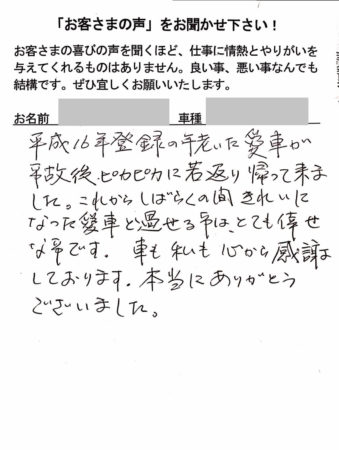 「お客さまの声」をお聞かせ下さい！
お客さまの喜びの声を聞くほど、仕事に情熱とやりがいを
与えてくれるものはありません。良い事、悪い事なんでも
結構です。ぜひ宜しくお願いいたします。
お名前 車種
平成16年登録の年老いた愛車が
事故後、ピカピカに若返り帰って来ま
した。これからしばらくの間きれいに
なった愛車と過せる事は、とても倖せ
な事です。車も私も心から感謝
しております。本当にありがとう
ございました。